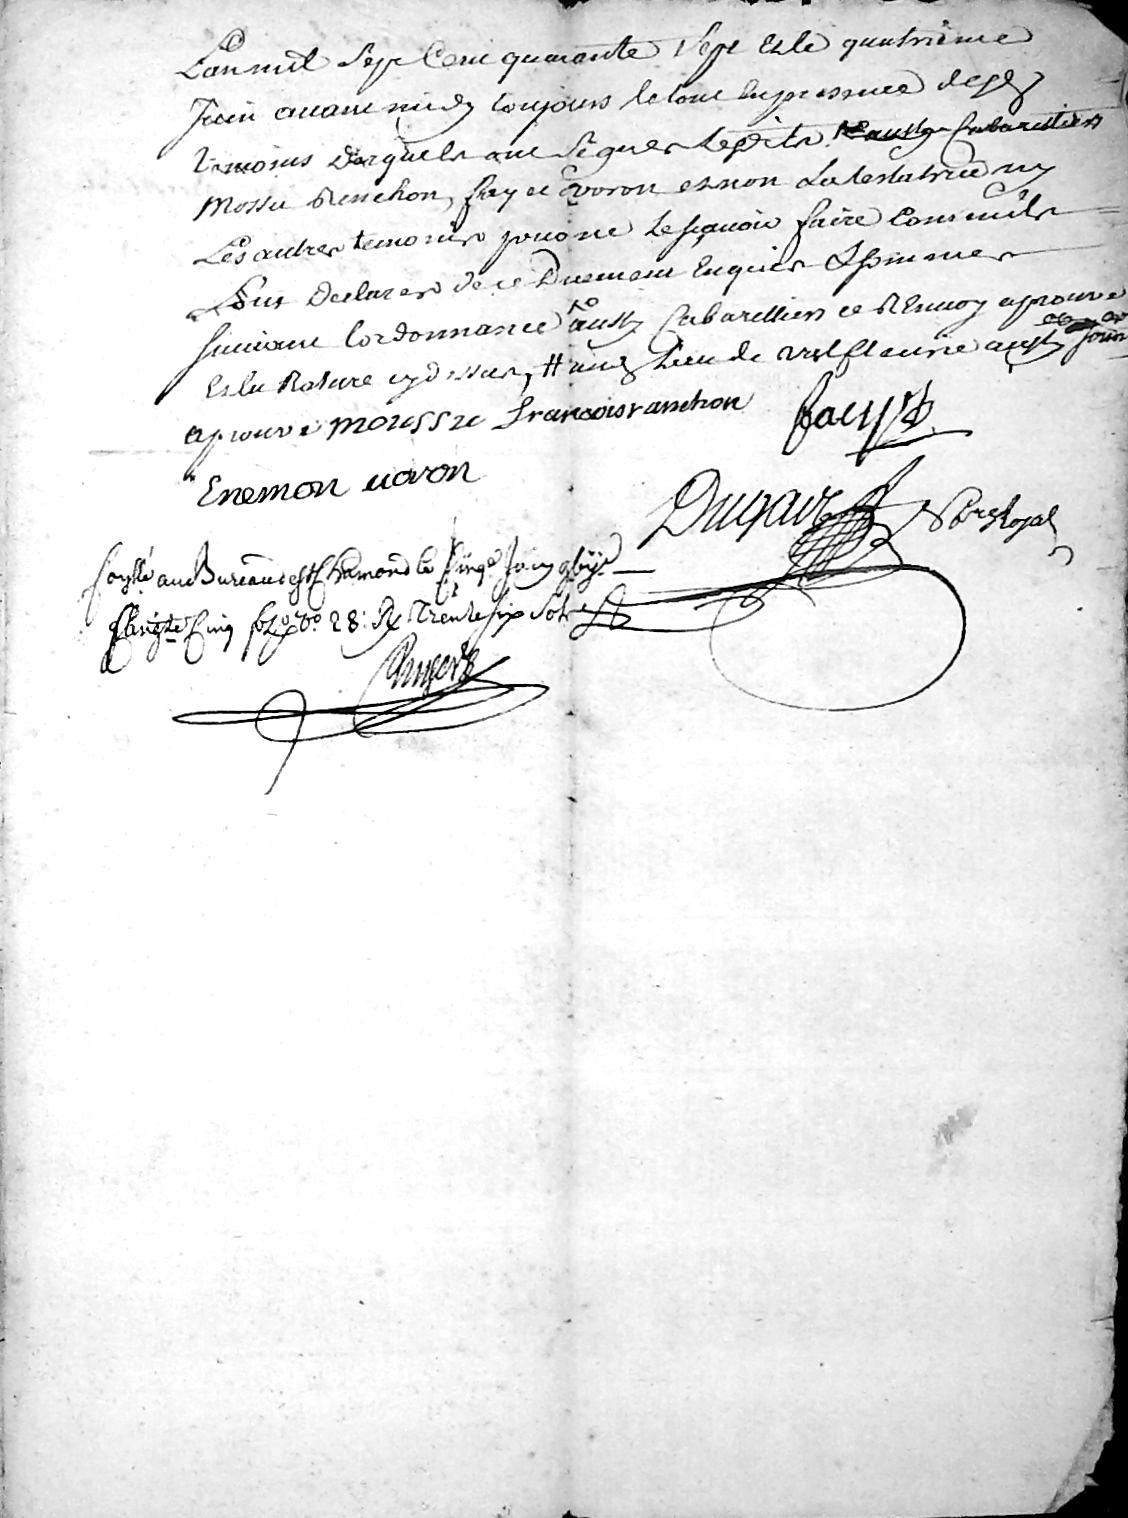 Lan mil Sept Cent quarante Sept Et le quatrieme
Juin avant midy toujours le tout en presence desd
temoins desquels ont Signes lesdits Cabarettier
Mossu Renchon, fay et voron et non La testatrice ny
Les autres temoins pour ne le sçavoir faire Comm'ils
Lont Declares de ce Duement Enquis & Sommes
suivant l'ordonnance austy Cabarettier ce Renvoy aprouvé
Et la Rature cydessus, # audt Lieu de valfleurie aussy
aprouve mousszu francois ranchon fay
Enemon voron
Dugair Nore Royal
Conllé au Bureau de St Chamond le Juin
Cinq fo vo 28: R Trente six Sols